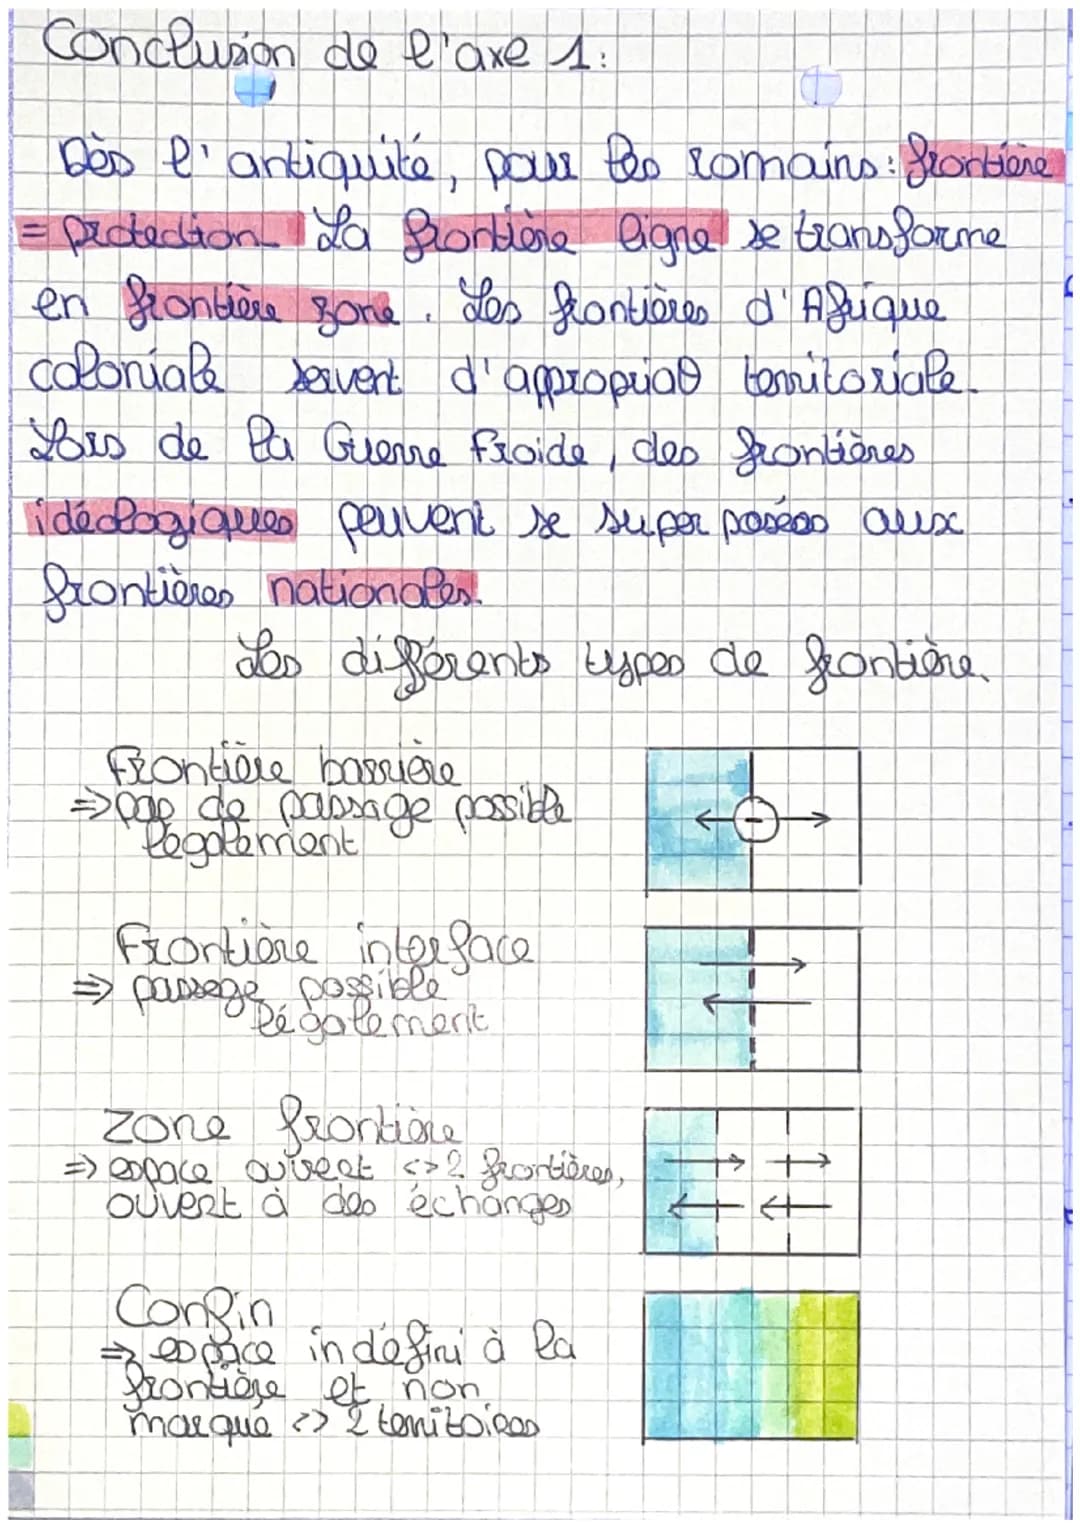 Conclusion de l'axe 1:
Dès l'antiquité, pour les romains : frontière
= protection La frontière ligne se transforme
en frontière zone. Les frontières d'Afrique
coloniale servent d'appropriat° territoriale.
Lors de la Guerre Froide, des frontières
idéologiques peuvent se superposées aux
frontières nationales.
Les différents types de frontière.
Frontière barrière
=> pas de passage possible
légalement
Frontière interface
=> passage possible
légalement
Zone frontière
=> espace ouvert <> 2 frontières,
ouvert à des échanges
Confin
=> espace indéfini à la
frontière et non
marqué <> 2 territoires